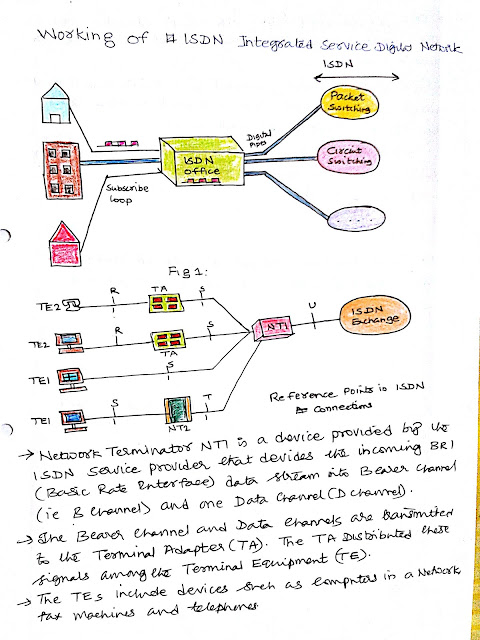 Working of ISDN Integrated Service Digital Network
ISDN
Packet
Switching
Digital
Pipes
ISDN
office
Circuit
Switching
Subscribe
loop
.....
Fig 1:
TE2 R TA S
TE2 R TA S
NT1 U ISDN
Exchange
TE1 S
TE1 S NT2 T
Reference Points in ISDN
Connections
→ Network Terminator NT1 is a device provided by the
ISDN service provider that devides the incoming BRI
(Basic Rate Interface) data stream into Bearer Channel
(ie B Channel) and one Data Channel (D channel).
→ The Bearer Channel and Data Channels are transmitted
to the Terminal Adapter (TA). The TA Distributed these
signals among the Terminal Equipment (TE).
→ The TEs include devices such as Computers in a Network
fax machines and telephones